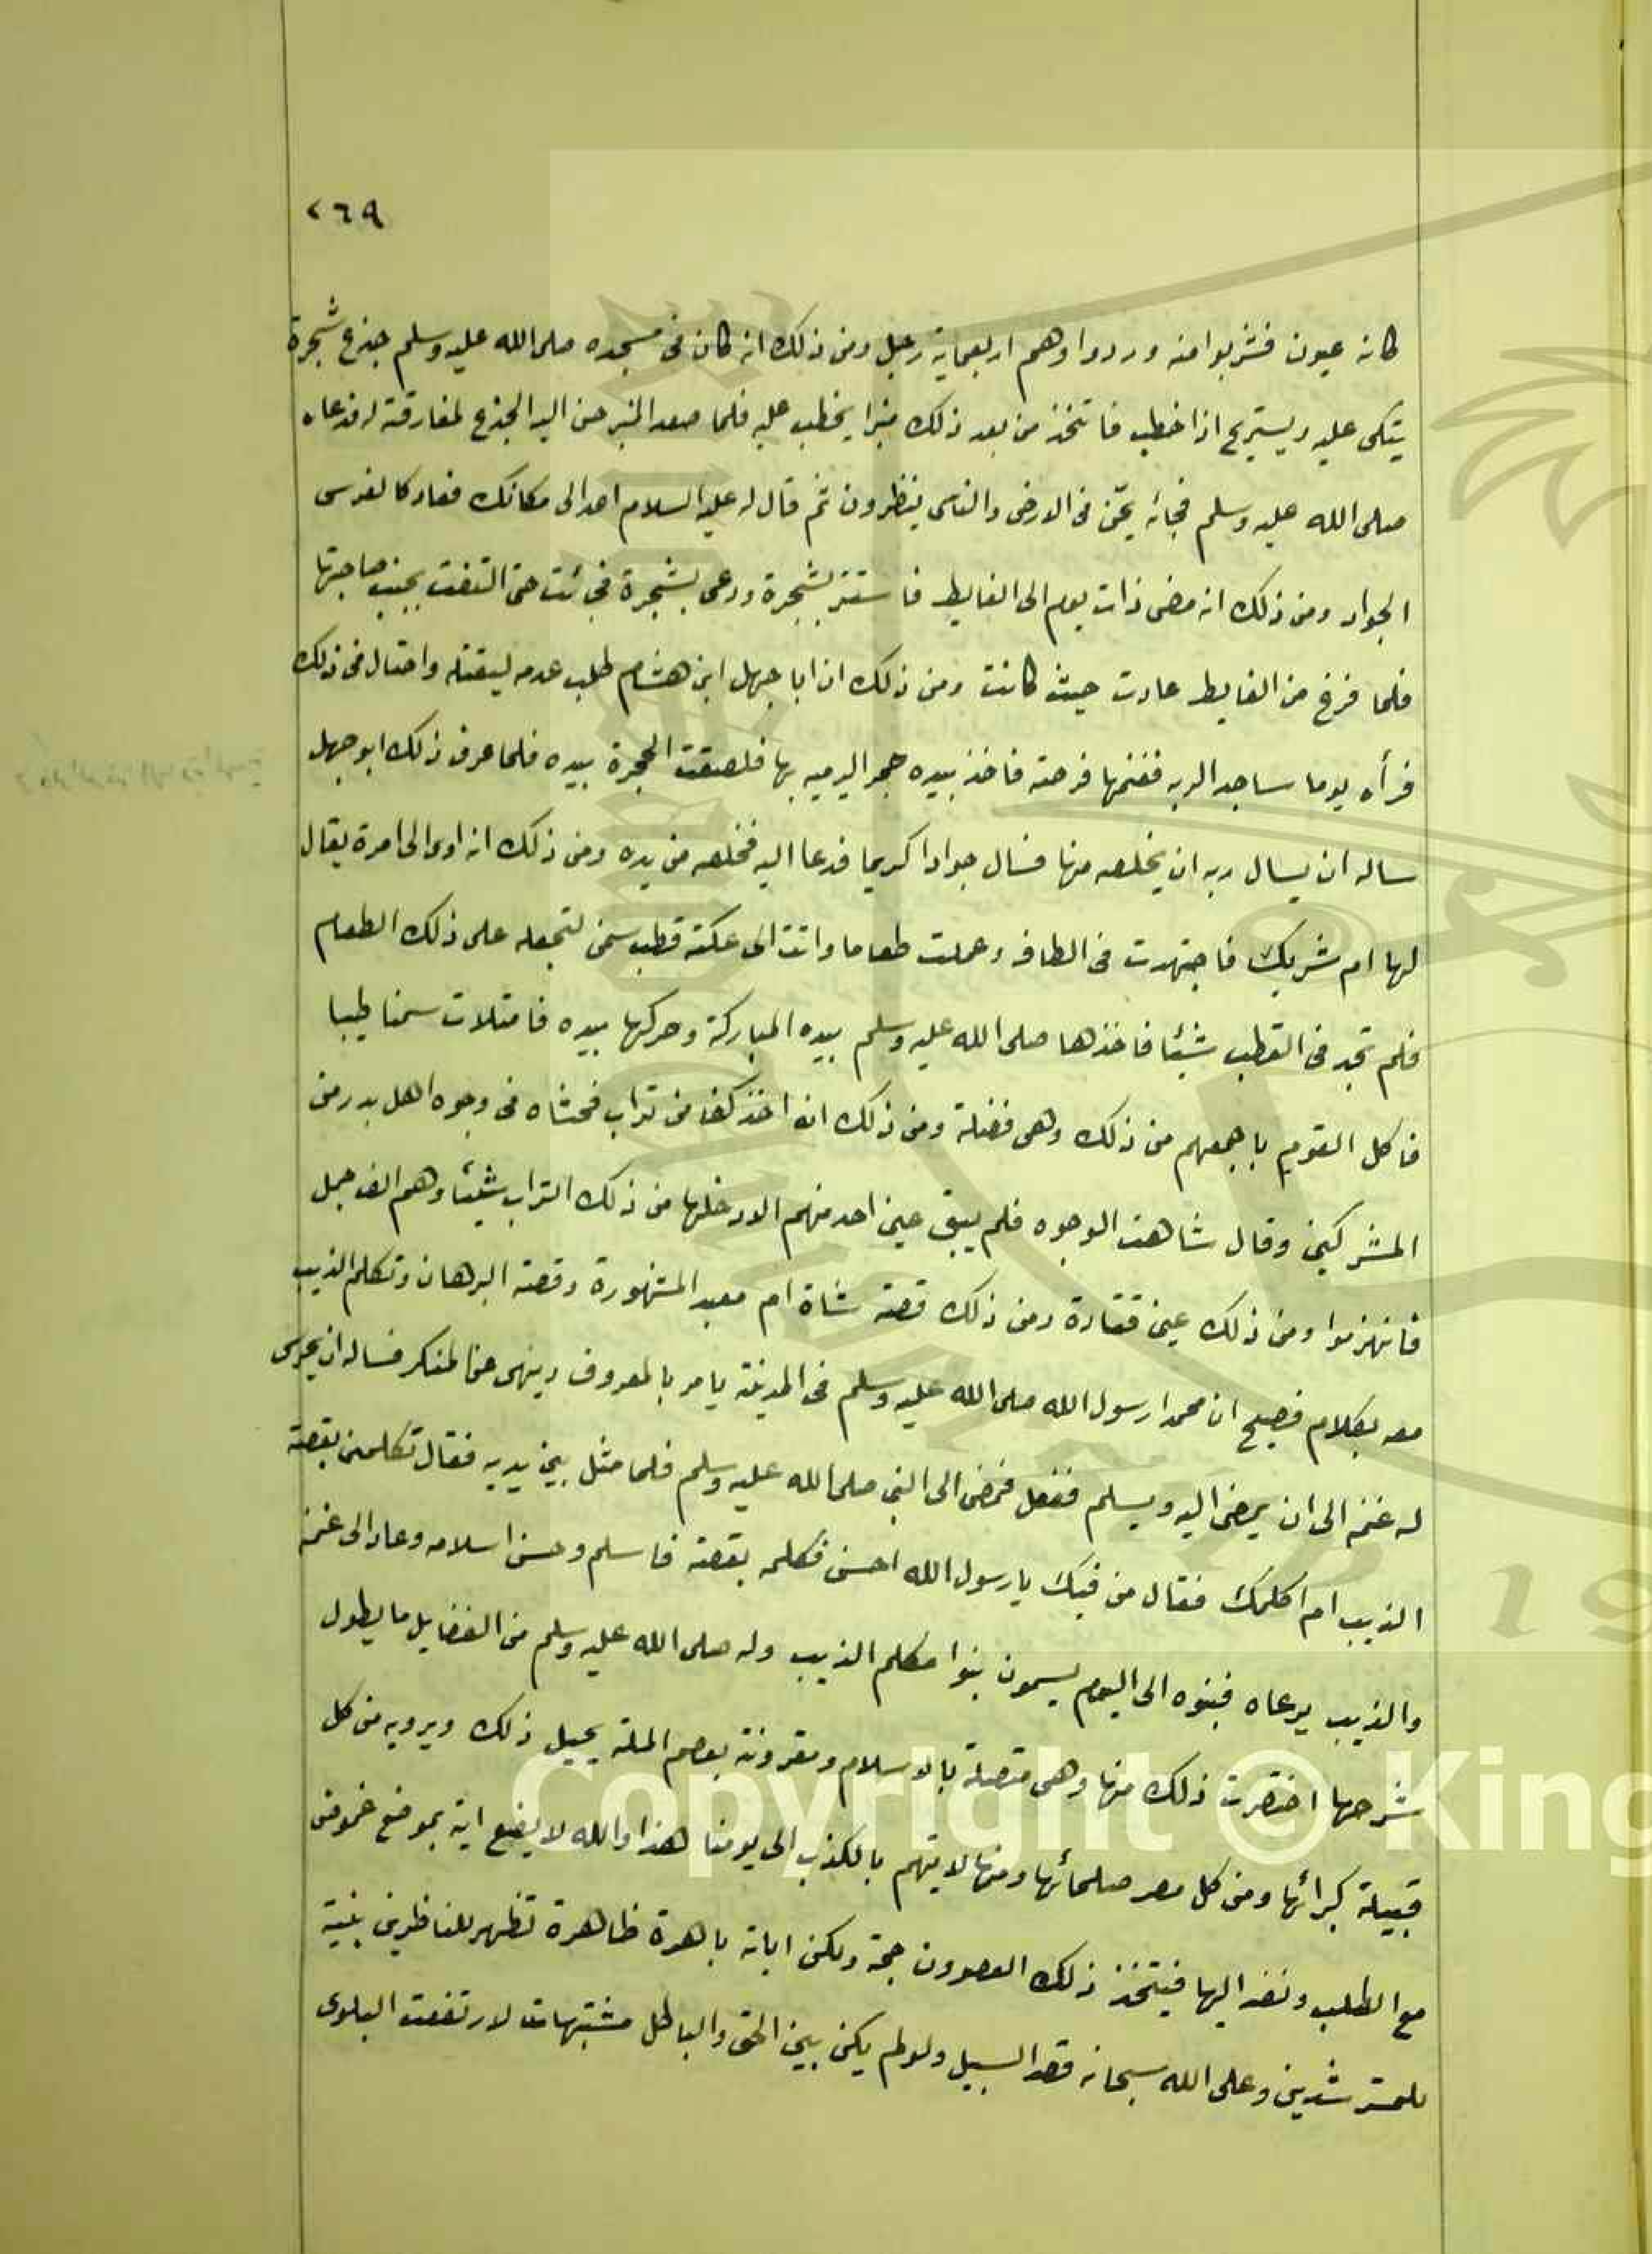 ٢٦٩
كانه عيون فشربوا منه ورددوا وهم اربعماية رجل ومن ذلك انه كان في مسجده صلى الله عليه وسلم جذع شجرة
يتكى عليه ويستريح اذا خطب فاتخذ من بعد ذلك منبرا يخطب عليه فلما صعد المنبر حن اليه الجذع لمفارقته له فدعاه
صلى الله عليه وسلم فجائه يحن في الارض والناس ينظرون ثم قال له عليه السلام اهد الى مكانك فعاد كالفرس
الجواد ومن ذلك انه مضى ذات يوم الى الغايط فاستتر بشجرة ودعى بشجرة فجائت حتى التفت بجنب صاحبتها
فلما فرغ من الغايط عادت حيث كانت ومن ذلك ان ابا جهل ابن هشام طلب عدمه ليقتله واحتال في ذلك
فرأه يوما ساجد الربه فغنمها فرصته فاخذ بيده حجر اليرميه بها فلصقت الحجرة بيده فلما عرف ذلك ابو جهل
ساله ان يسال ربه ان يخلصه منها فسال جوادا كريما فدعا اليه فخلصه من يده ومن ذلك انه اوى الى امرة يقال
لها ام شريك فاجتهدت في الطافه وعملت طعاما واتت الى عكته قطب سمن لتجعله على ذلك الطعام
فلم تجد في القطب شيئا فاخذها صلى الله عليه وسلم بيده المباركة وحركها بيده فامتلات سمنا طيبا
فاكل القوم باجمعهم من ذلك وهي فضلة ومن ذلك انه اخذ كفا من تراب فحثاه في وجوه اهل بدر من
المشركين وقال شاهت الوجوه فلم يبق عين احد منهم الا دخلها من ذلك التراب شيئا وهم الف جمل
فانهزموا ومن ذلك عين قتادة ومن ذلك قصة شاة ام معبد المشهورة وقصة البرهان وتكلم الذيب
معه بكلام فصيح ان محمدا رسول الله صلى الله عليه وسلم في المدينة يامر بالمعروف وينهى عن المنكر فساله ان يحرس
له غنمه الى ان يمضي اليه ويسلم ففعل فمضى الى النبي صلى الله عليه وسلم فلما مثل بين يديه فقال تكلمني بقصة
الذيب ام اكلمك فقال من فيك يا رسول الله احسن فكلمه بقصته فاسلم وحسن اسلامه وعاد الى غنمه
والذيب يرعاه فبنوه الى اليوم يسمون بنوا مكلم الذيب وله صلى الله عليه وسلم من الفضايل ما يطول
شرحها اختصرت ذلك منها وهي متصلة بالاسلام ومقرونة بعصم الملة يحيل ذلك ويرويه من كل
قبيلة كبرائها ومن كل مصر صلحائها ومنها لا يتهم بالكذب الى يومنا هذا والله لا يضع اية بموضع غموض
مع الطلب ونفد اليها فيتخذ ذلك العصوون حجة ولكن اياته باهرة ظاهرة تظهر للناظرين بنية
للمسترشدين وعلى الله سبحانه قصد السبيل ولو لم يكن بين الحق والباطل مشتبهات لارتفعت البلوى
Copyright © King